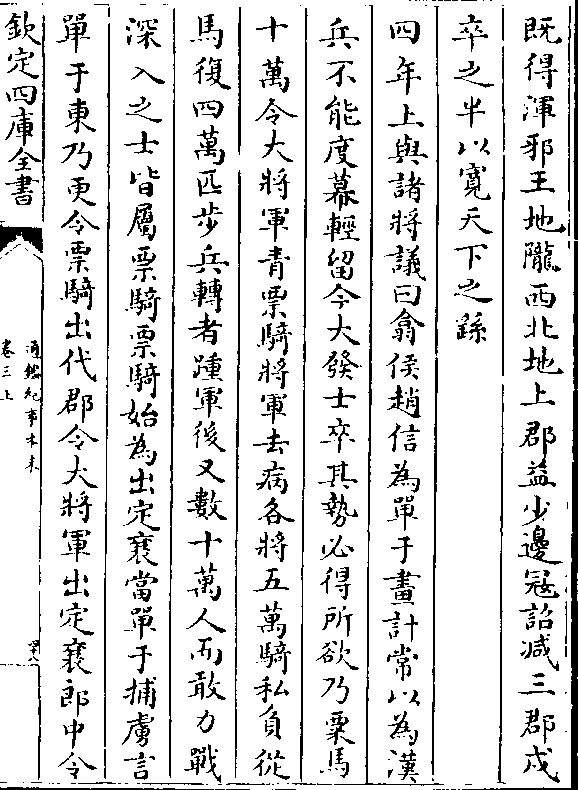 既得渾邪王地隴西北地上郡益少邊冦詔減三郡戍
卒之半以寛天下之繇
四年上與諸將議曰翕侯趙信為單于畫計常以為漢
兵不能度幕輕留今大發士卒其勢必得所欲乃粟馬
十萬令大將軍青票騎將軍去病各將五萬騎私負從
馬復四萬匹步兵轉者踵軍後又數十萬人而敢力戰
深入之士皆屬票騎票騎始為出定襄當單于捕虜言
單于東乃更令票騎出代郡令大將軍出定襄郎中令
欽定四庫全書
通鑑紀事本末
卷三上